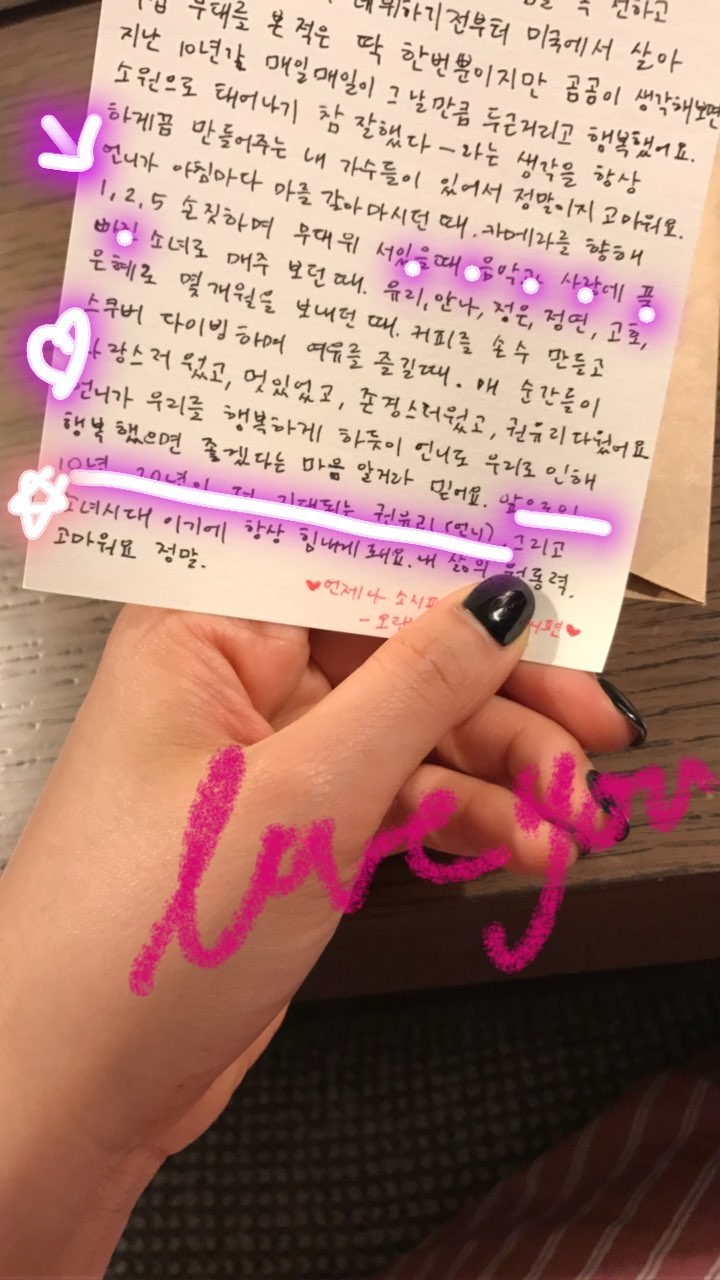 데뷔하기전부터 미국에서 살아
무대를 본 적은 딱 한번뿐이지만 곰곰이 생각해보면
지난 10년간 매일매일이 그날만큼 두근거리고 행복했어요.
소원으로 태어나기 참 잘했다 - 라는 생각을 항상
하게끔 만들어주는 내 가수들이 있어서 정말이지 고마워요.
언니가 아침마다 마를 갈아마시던 때. 카메라를 향해
1, 2, 5 손짓하며 무대위 서있을때 음악과 사랑에 푹
빠진 소녀로 매주 보던 때. 유리, 안나, 정은, 정연, 고호,
은혜로 몇개월을 보내던 때. 커피를 손수 만들고
스쿠버 다이빙하며 여유를 즐길때. 매 순간들이
사랑스러웠고, 멋있었고, 존경스러웠고, 권유리다웠어요
언니가 우리를 행복하게 하듯이 언니도 우리로 인해
행복했으면 좋겠다는 마음 알거라 믿어요. 앞으로의
10년, 20년이 더 기대되는 권유리(언니), 그리고
소녀시대 이기에 항상 힘내게 돼요. 내 삶의 원동력.
고마워요 정말.
♥언제나
love you